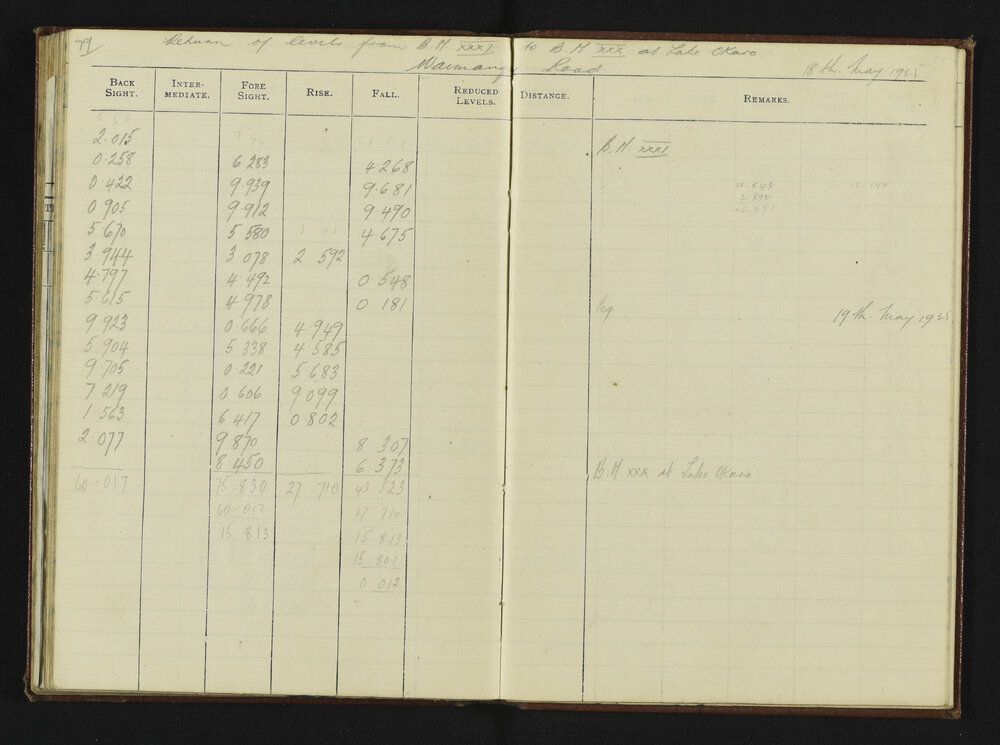 Return of levels from B.M. XXXI to B.M. XXX at Lake Okaro
Waimangu Road 18th May 1925
BACK SIGHT. INTER-MEDIATE. FORE SIGHT. RISE. FALL. REDUCED LEVELS. DISTANCE. REMARKS.
2.015 B.M. XXXI
0.258 6 283 4.268
0.422 9.939 9.681
0.905 9 912 9 490
5 670 5 580 4 675
3 944 3 078 2 592
4.797 4 492 0 548
5.615 4.978 0.181
9.923 0.666 4 949 19th May 1925
5 904 5 338 4 585
9.705 0.221 5.683
7 219 0 606 9 099
1 563 6 417 0 802
2.077 9 870 8 307
8 450 6 373 B.M XXX at Lake Okaro
60.017 75.830 27.710 43.523
60.017 27 710
15 813 15 813
15 801
0 012